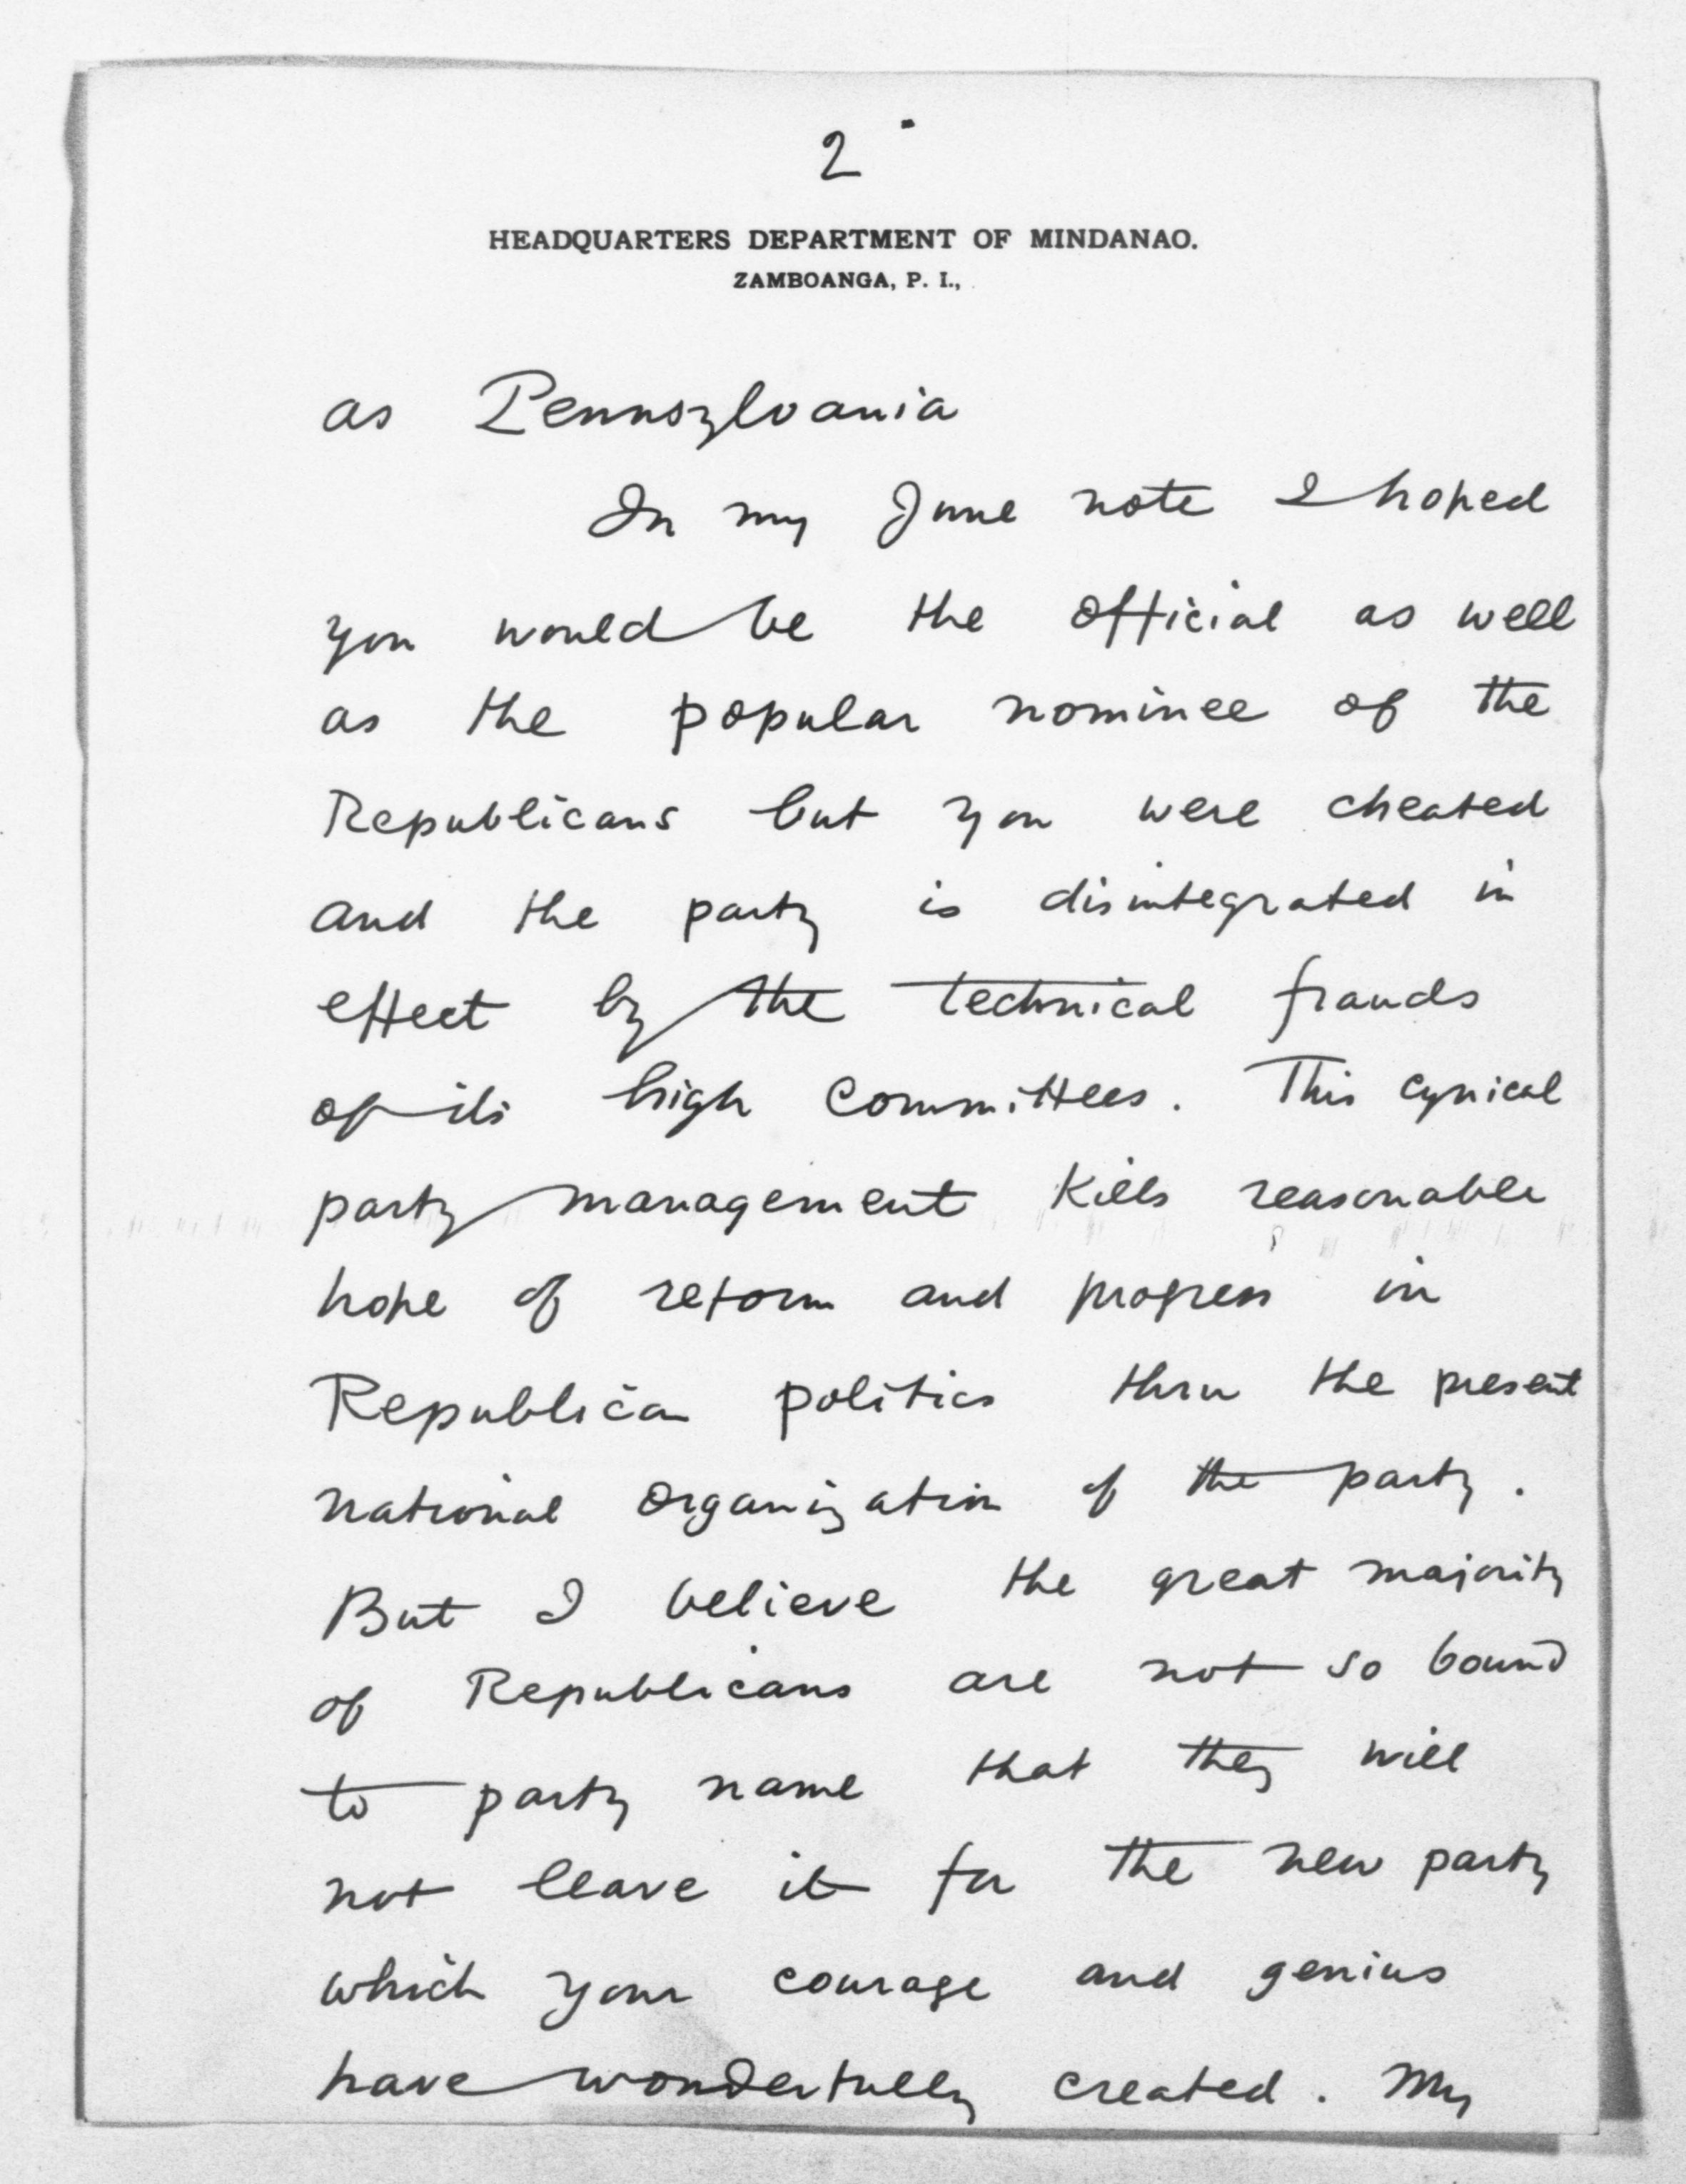 2
HEADQUARTERS DEPARTMENT OF MINDANAO.
ZAMBOANGA, P. I.,
as Pennsylvania
In my June note I hoped
you would be the official as well
as the popular nominee of the
Republicans but you were cheated
and the party is disintegrated in
effect by the technical frauds
of its high committees. This cynical
party management kills reasonable
hope of reform and progress in
Republican politics thru the present
national organization of the party.
But I believe the great majority
of Republicans are not so bound
to party name that they will
not leave it for the new party
which your courage and genius
have wonderfully created. My